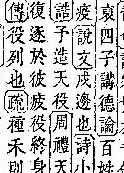 四子講德論百姓
疫說文戍邊也詩小
誥予造天役周禮天
復遂於彼疲役終身
傳役列也疏種禾則